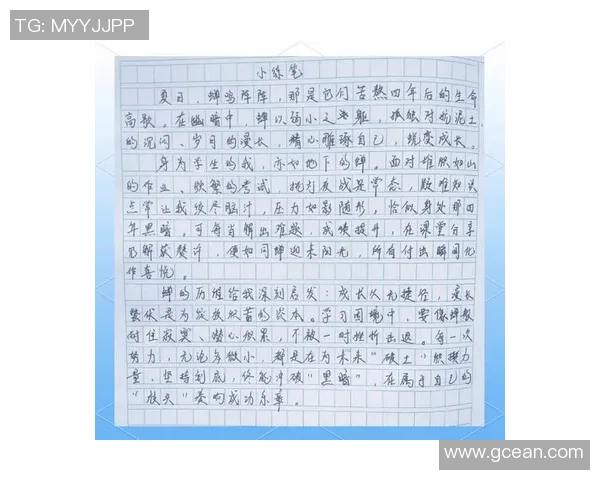 TG: MYYJJPP
小练笔
夏日，蝉鸣阵阵，那是它们苦熬四年后的生命
高歌。在幽暗中，蝉以弱小之躯，孤独对抗泥土
的沉闷、岁月的漫长，精心雕琢自己，蜕变成长。
身为学生的我，亦如地下的蝉。面对堆积如山
的作业、频繁的考试，挑灯夜战是常态，疑难知识
点常让我绞尽脑汁，压力如影随形，恰似身处那四
年黑暗。可每当解出难题，成绩提升，在课堂分享
见解获赞许，便如同蝉迎来阳光，所有付出瞬间化
作喜悦。
蝉的历程给我深刻启发：成长从无捷径，漫长
蛰伏是为发掘积蓄的资本。学习困境中，要像蝉般
耐住寂寞、潜心积累，不被一时挫折击退。每一次
努力，无论多微小，都是在为未来“破土”积攒力
量，坚持到底，终能冲破“黑暗”，在属于自己的
“枝头”奏响成功乐章。
www.gcean.com